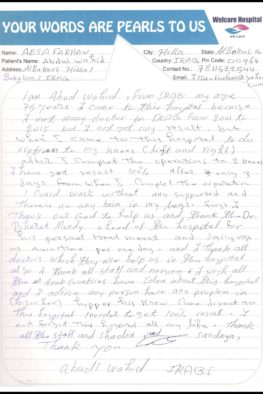 YOUR WORDS ARE PEARLS TO US
Welcare Hospital
Name: AESA FARHAN City: Hilla State: Al
Patient's Name: Abdul wahid Country: IRAQ Pin Code:
Address: Hilla / Contact No.:
Babylon / IRAQ Email:
I am Abud wahid, from IRAQ my age
75 years I came to this hospital because
I met many doctor in IRAQ from 2000 to
2015 but I not get any result but
when I came to this hospital to do
operation to my knees (left and right)
after I complet the operations to 2 knees
I have got result 100% after only 3
days from when I complet the operation
I could walk without any supported and
there is no any bain in my legs. firstly
Thank our God to help us and thank the Dr.
Bharat Mody a head of the hospital for
his personal treatment and carrying
us in one day. and I thank all
doctors which they also help us in the hospital
also I thank all staff and nersing. I wish all
the countries have idea about this hospital
and I advice any person have any problem in
the knee. Came direct to
this hospital to get 100% result. I
not forget this hospital all my life. thank
all the staff and and sandaya,
Thank you
Abudl wahid IRAQI